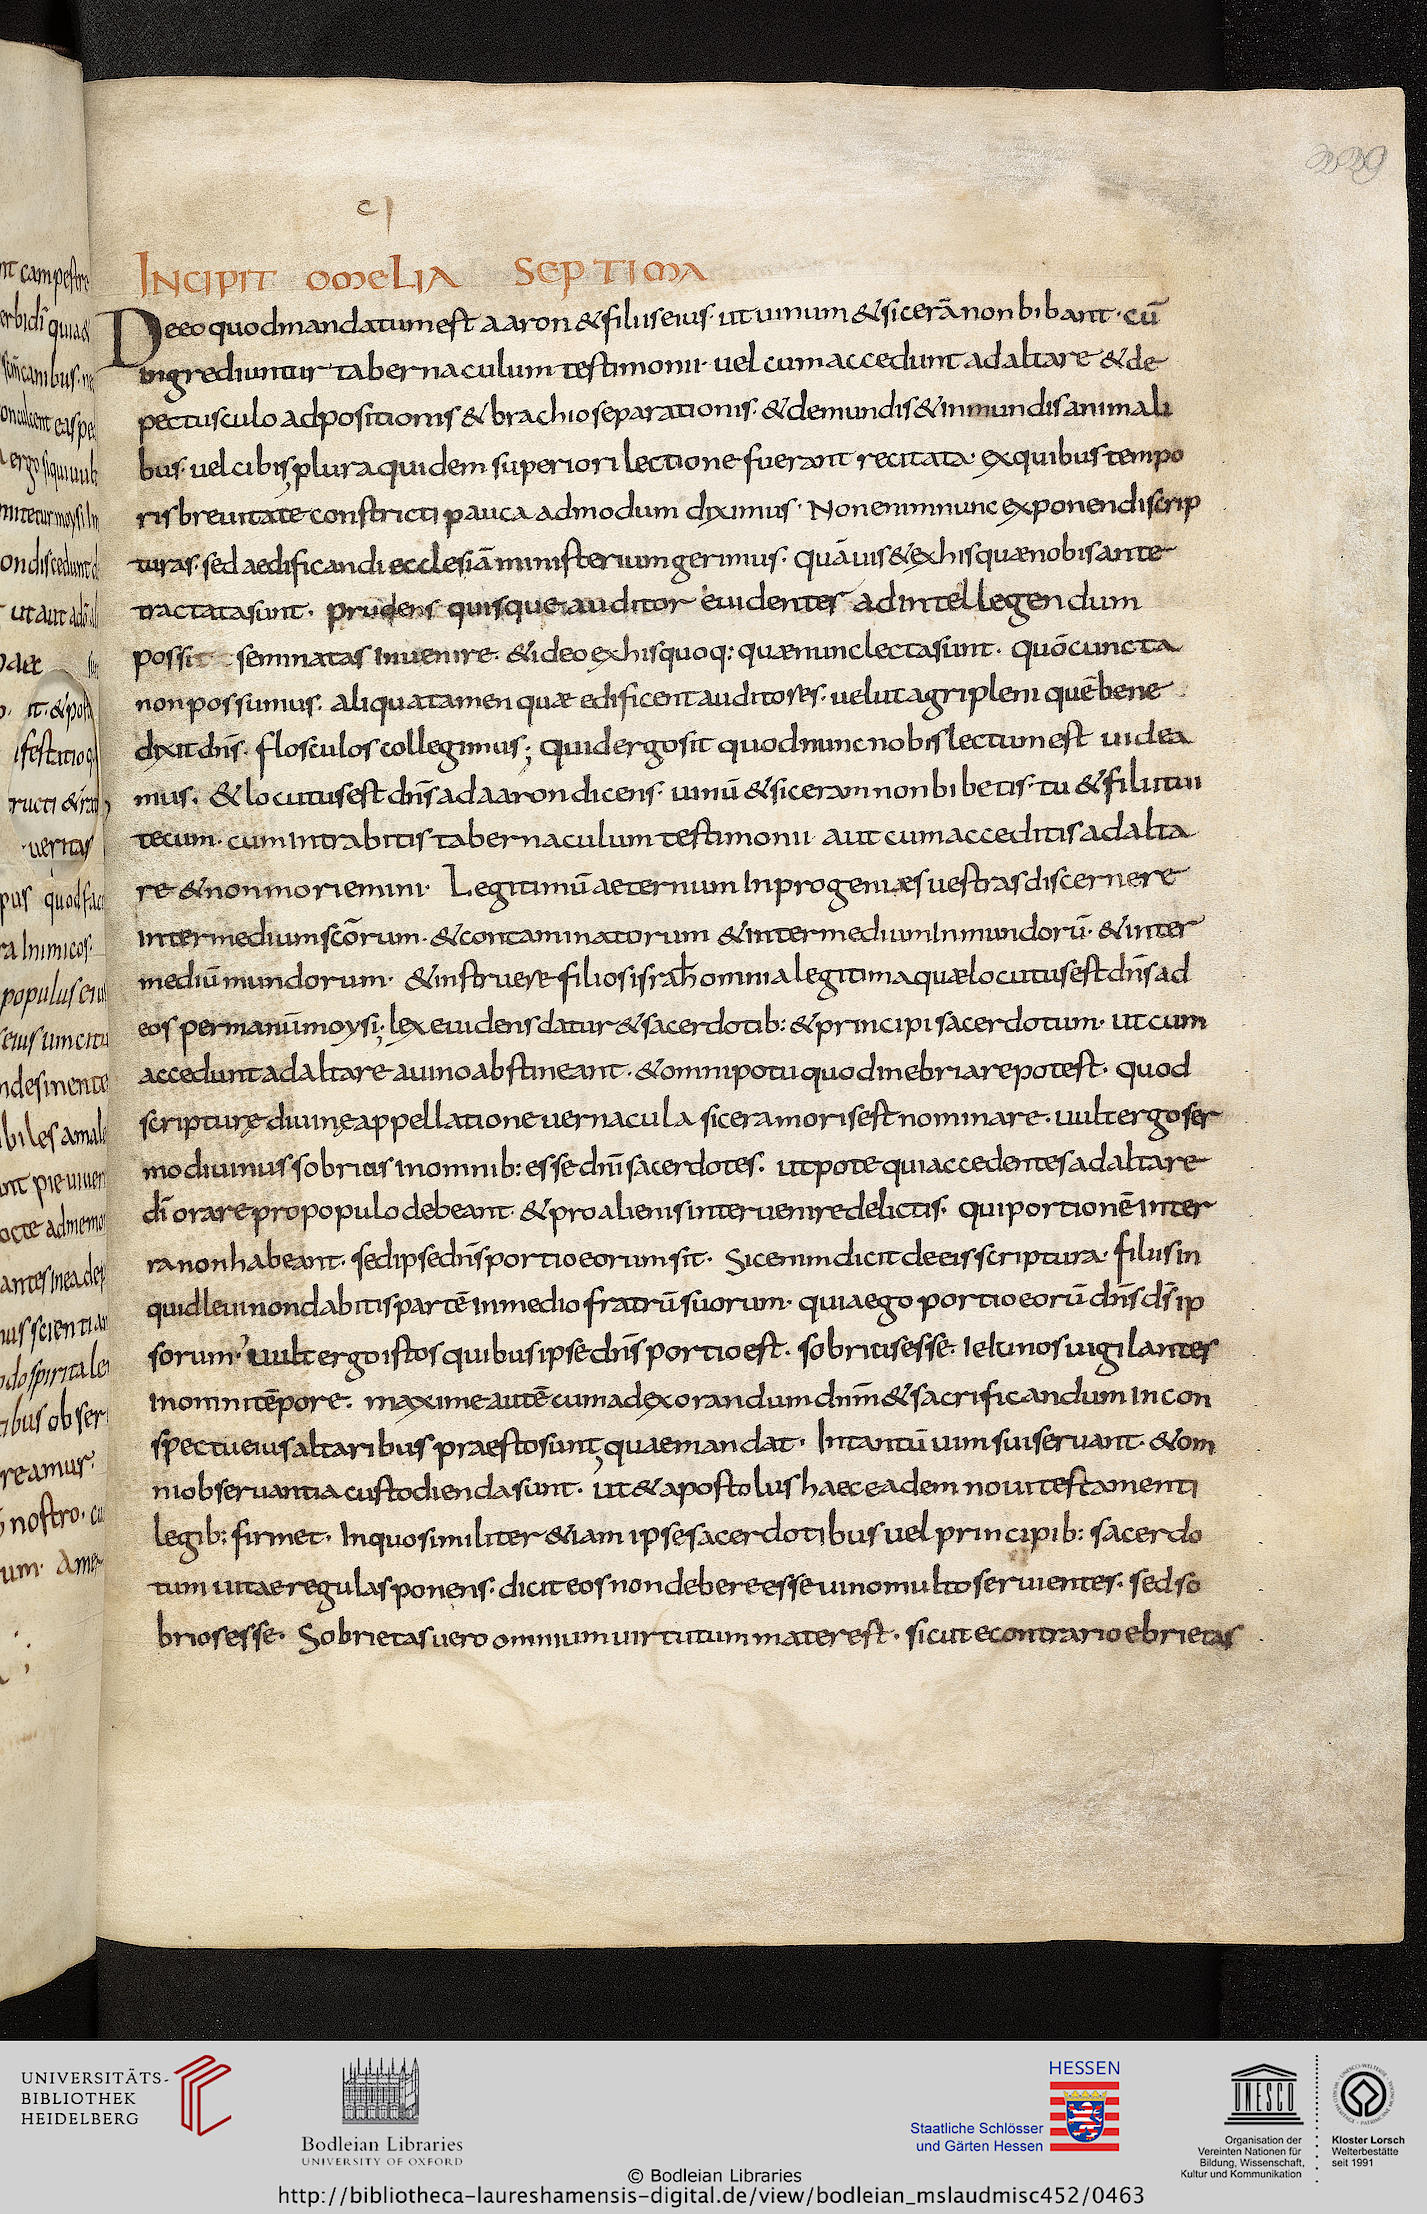 cı
INCIPIT OMELIA SEPTIMA
De eo quod mandatum est aaron & filiis eius· ut uinum & sicerā non bibant· cū
ingrediuntur tabernaculum testimonii· uel cum accedunt ad altare & de
pectusculo adpositionis & brachio separationis· & de mundis & inmundis animali
bus· uel cibis; plura quidem superiori lectione fuerant recitata· ex quibus tempo
ris breuitate constricti pauca admodum diximus· Non enim nunc exponendi scrip
turas· sed aedificandi ecclesiā ministerium gerimus· quāuis & ex his quæ nobis ante
tractata sunt· prudens quisque auditor euidenter ad intellegendum
possit seminatas inuenire· & ideo ex his quoq: quæ nunc lecta sunt· quō cuncta
non possumus· aliqua tamen quæ edificent auditores· uelut agri pleni quē bene
dixit dn̄s· flosculos collegimus; quid ergo sit quod nunc nobis lectum est uidea
mus· & locutus est dn̄s ad aaron dicens· uinū & siceram non bibetis· tu & filii tui
tecum· cum intrabitis tabernaculum testimonii aut cum acceditis ad alta
re & non moriemini· Legitimū aeternum in progenięs uestras discernere
inter medium scōrum· & contaminatorum & inter medium inmundorū· & inter
mediū mundorum· & instruere filios israh̄ omnia legitima quæ locutus est dn̄s ad
eos per manū moysi; lex euidens datur & sacerdotib: & principi sacerdotum· ut cum
accedunt ad altare a uino abstineant· & omni potu quod inebriare potest· quod
scripturę diuinę appellatione uernacula sicera moris est nominare· uult ergo ser
mo diuinus sobrius in omnib: esse dn̄i sacerdotes· utpote qui accedentes ad altare
dī orare pro populo debeant· & pro alienis interuenire delictis· qui portionē in ter
ra non habeant· sed ipse dn̄s portio eorum sit· Sic enim dicit de eis scriptura· filiis in
quid leui non dabitis partē in medio fratrū suorum· quia ego portio eorū dn̄s ds̄ ip
sorum· uult ergo istos quibus ipse dn̄s portio est· sobrius esse· Ieiunos uigilantes
in omni tēpore· maxime autē cum ad exorandum dnm̄ & sacrificandum in con
spectu eius altaribus praesto sunt; quae mandat· Intantū uim sui seruant· & om
ni obseruantia custodienda sunt· ut & apostolus haec eadem noui testamenti
legib: firmet· In quo similiter &iam ipse sacerdotibus uel principib: sacerdo
tum uitae regulas ponens· dicit eos non debere esse uino multo seruientes· sed so
brios esse· Sobrietas uero omnium uirtutum mater est· sicut econtrario ebrietas
UNIVERSITÄTS-
BIBLIOTHEK
HEIDELBERG
Bodleian Libraries
UNIVERSITY OF OXFORD
HESSEN
Staatliche Schlösser
und Gärten Hessen
UNESCO
Organisation der
Vereinten Nationen für
Bildung, Wissenschaft,
Kultur und Kommunikation
Kloster Lorsch
Welterbestätte
seit 1991
© Bodleian Libraries
http://bibliotheca-laureshamensis-digital.de/view/bodleian_mslaudmisc452/0463